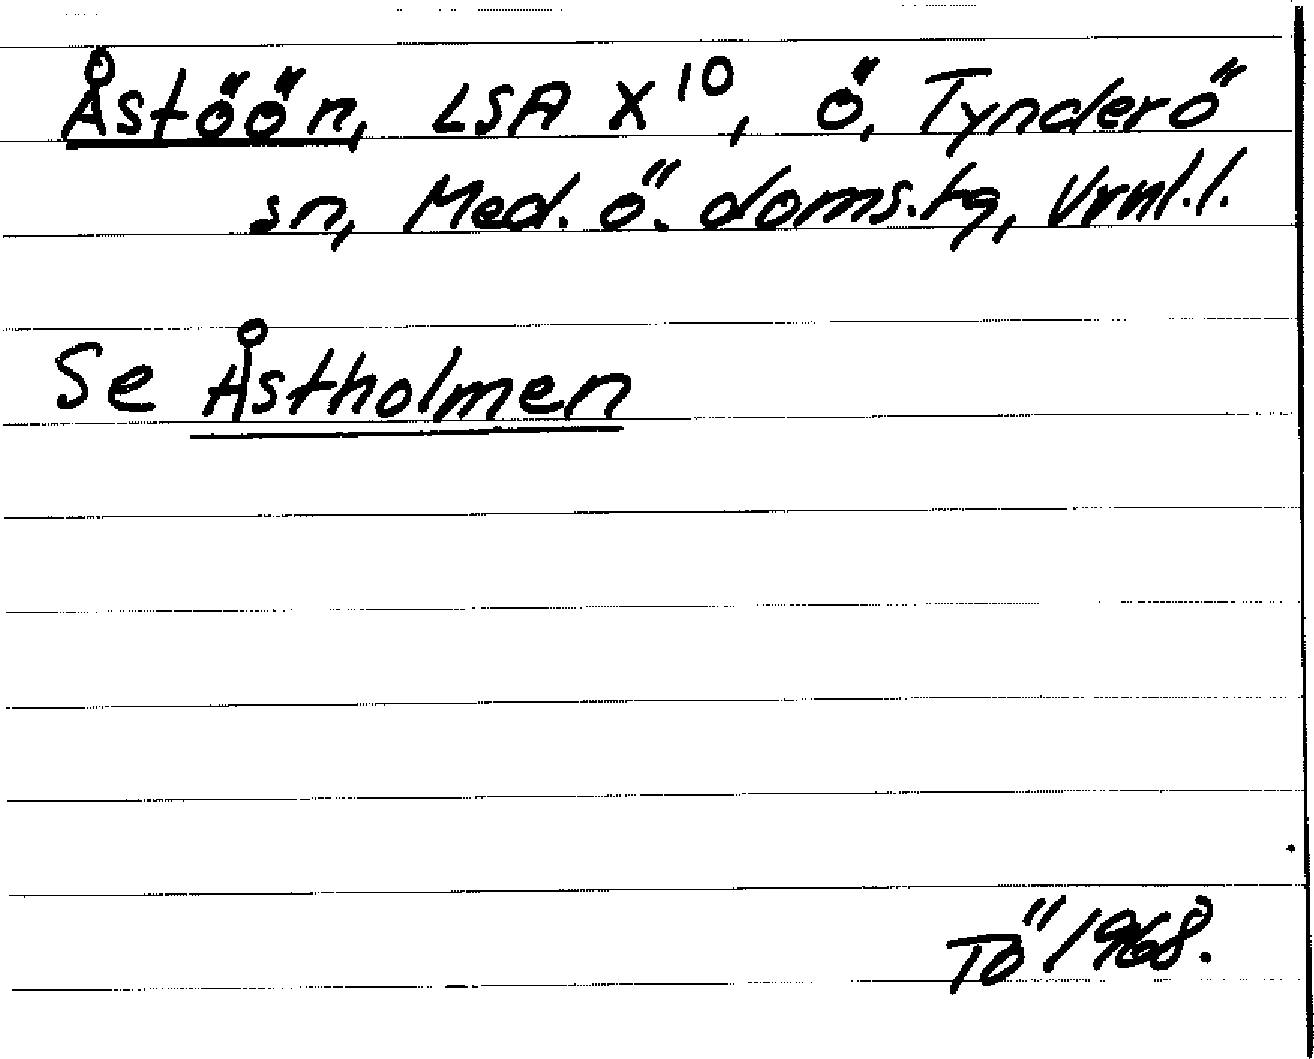 Åstöön, LSA X¹⁰, ö, Tynderö
sn, Med. ö. doms.tg, Vrnl.l.
Se Åstholmen
TÖ 1968.